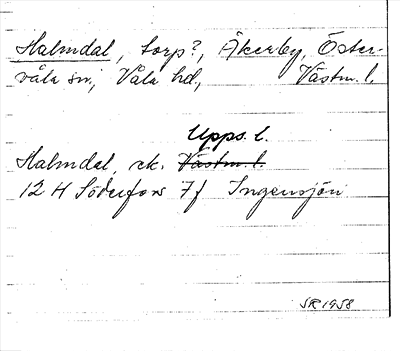 Halmdal, torp?, Åkerby, Öster-
våla sn, Våla hd, Västm. l.
Upps. l.
Halmdal, ek. Västm. l.
12 H Söderfors 7f Ingensjön
SR 1958